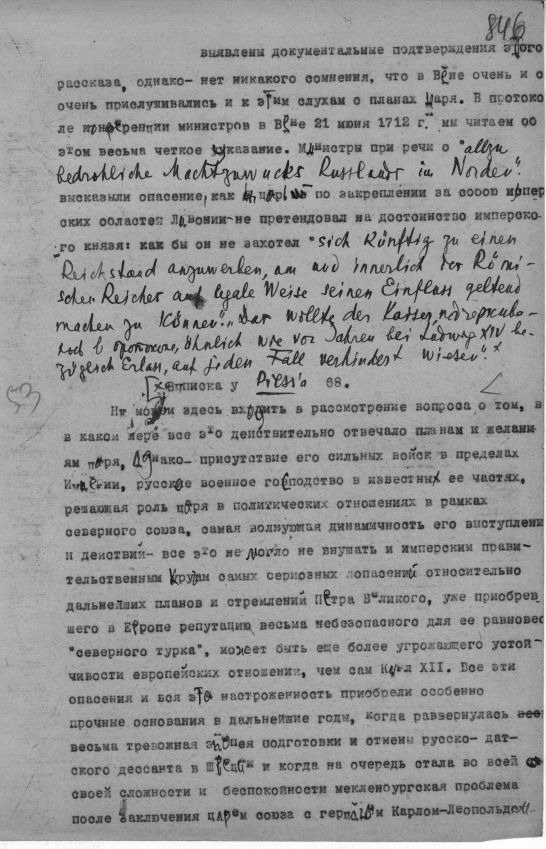 846
выявлены документальные подтверждения этого
рассказа, однако- нет никакого сомнения, что в Вене очень и о
очень прислушивались и к этим слухам о планах Царя. В протоко
ле конференции министров в Вене 21 июня 1712 г. мы читаем об
этом весьма четкое указание. Министры при речи о "allzu
bedrohliche Machtzuwucks Russlands im Norden".
высказыли опасение, как царь по закреплении за собою импер
ских областей Ливонии-не претендовал на достоинство имперско-
го князя: как бы он не захотел "sich künftig zu einen
Reichstand anzuwerben, um und innerlich der Römi-
schen Reiches auf legale Weise seinen Einfluss geltend
machen zu können". "Das wollte der Kasser, подчеркива-
в протоколе, ähnlich wie vor Jahren bei Ludwig XIV be-
züglich Erlass, auf jeden Fall verhindert wiesen". x
[x Выписка у Pressi'a 68.
53
Не можем здесь входить в рассмотрение вопроса о том, в
в какой мере все это действительно отвечало планам и желани-
ям царя, Однако- присутствие его сильных войск в пределах
Империи, русское военное господство в известных ее частях,
решающая роль царя в политических отношениях в рамках
северного союза, самая волнующая динамичность его выступлени
и действий- все это не могло не внушать и имперским прави-
тельственным кругам самых сериозных опасений относительно
дальнейших планов и стремлений Петра Великого, уже приобрев
шего в Европе репутацию весьма небезопасного для ее равновес
"северного турка", может быть еще более угрожающего устой-
чивости европейских отношении, чем сам Карл XII. Все эти
опасения и вся эта настроженность приобрели особенно
прочные основания в дальнейшие годы, когда развернулась
весьма тревожная эпопея подготовки и отмены русско- дат-
ского дессанта в Швеции и когда на очередь стала во всей
своей сложности и беспокойности мекленбургская проблема
после заключения царем союза с герцогом Карлом-Леопольдом.